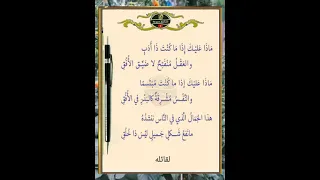 مَاذَا عَلَيْكَ إِذَا مَا كُنْتَ ذَا أَدَبٍ
والعَقْلُ مُنْفَتِحٌ لا ضَيِّقَ الأُفُقِ
مَاذَا عَلَيْكَ إِذَا مَا كُنْتَ مُبْتَسِمًا
والنَّفْسُ مُشْرِقَةٌ كَالبَدْرِ فِي الأُفُقِ
هذا الجَمَالُ الَّذِي فِي النَّاسِ نَنْشُدُهُ
مانَفْعُ شَكْلٍ جَمِيلٍ لَيْسَ ذَا خُلُقِ
لقائله